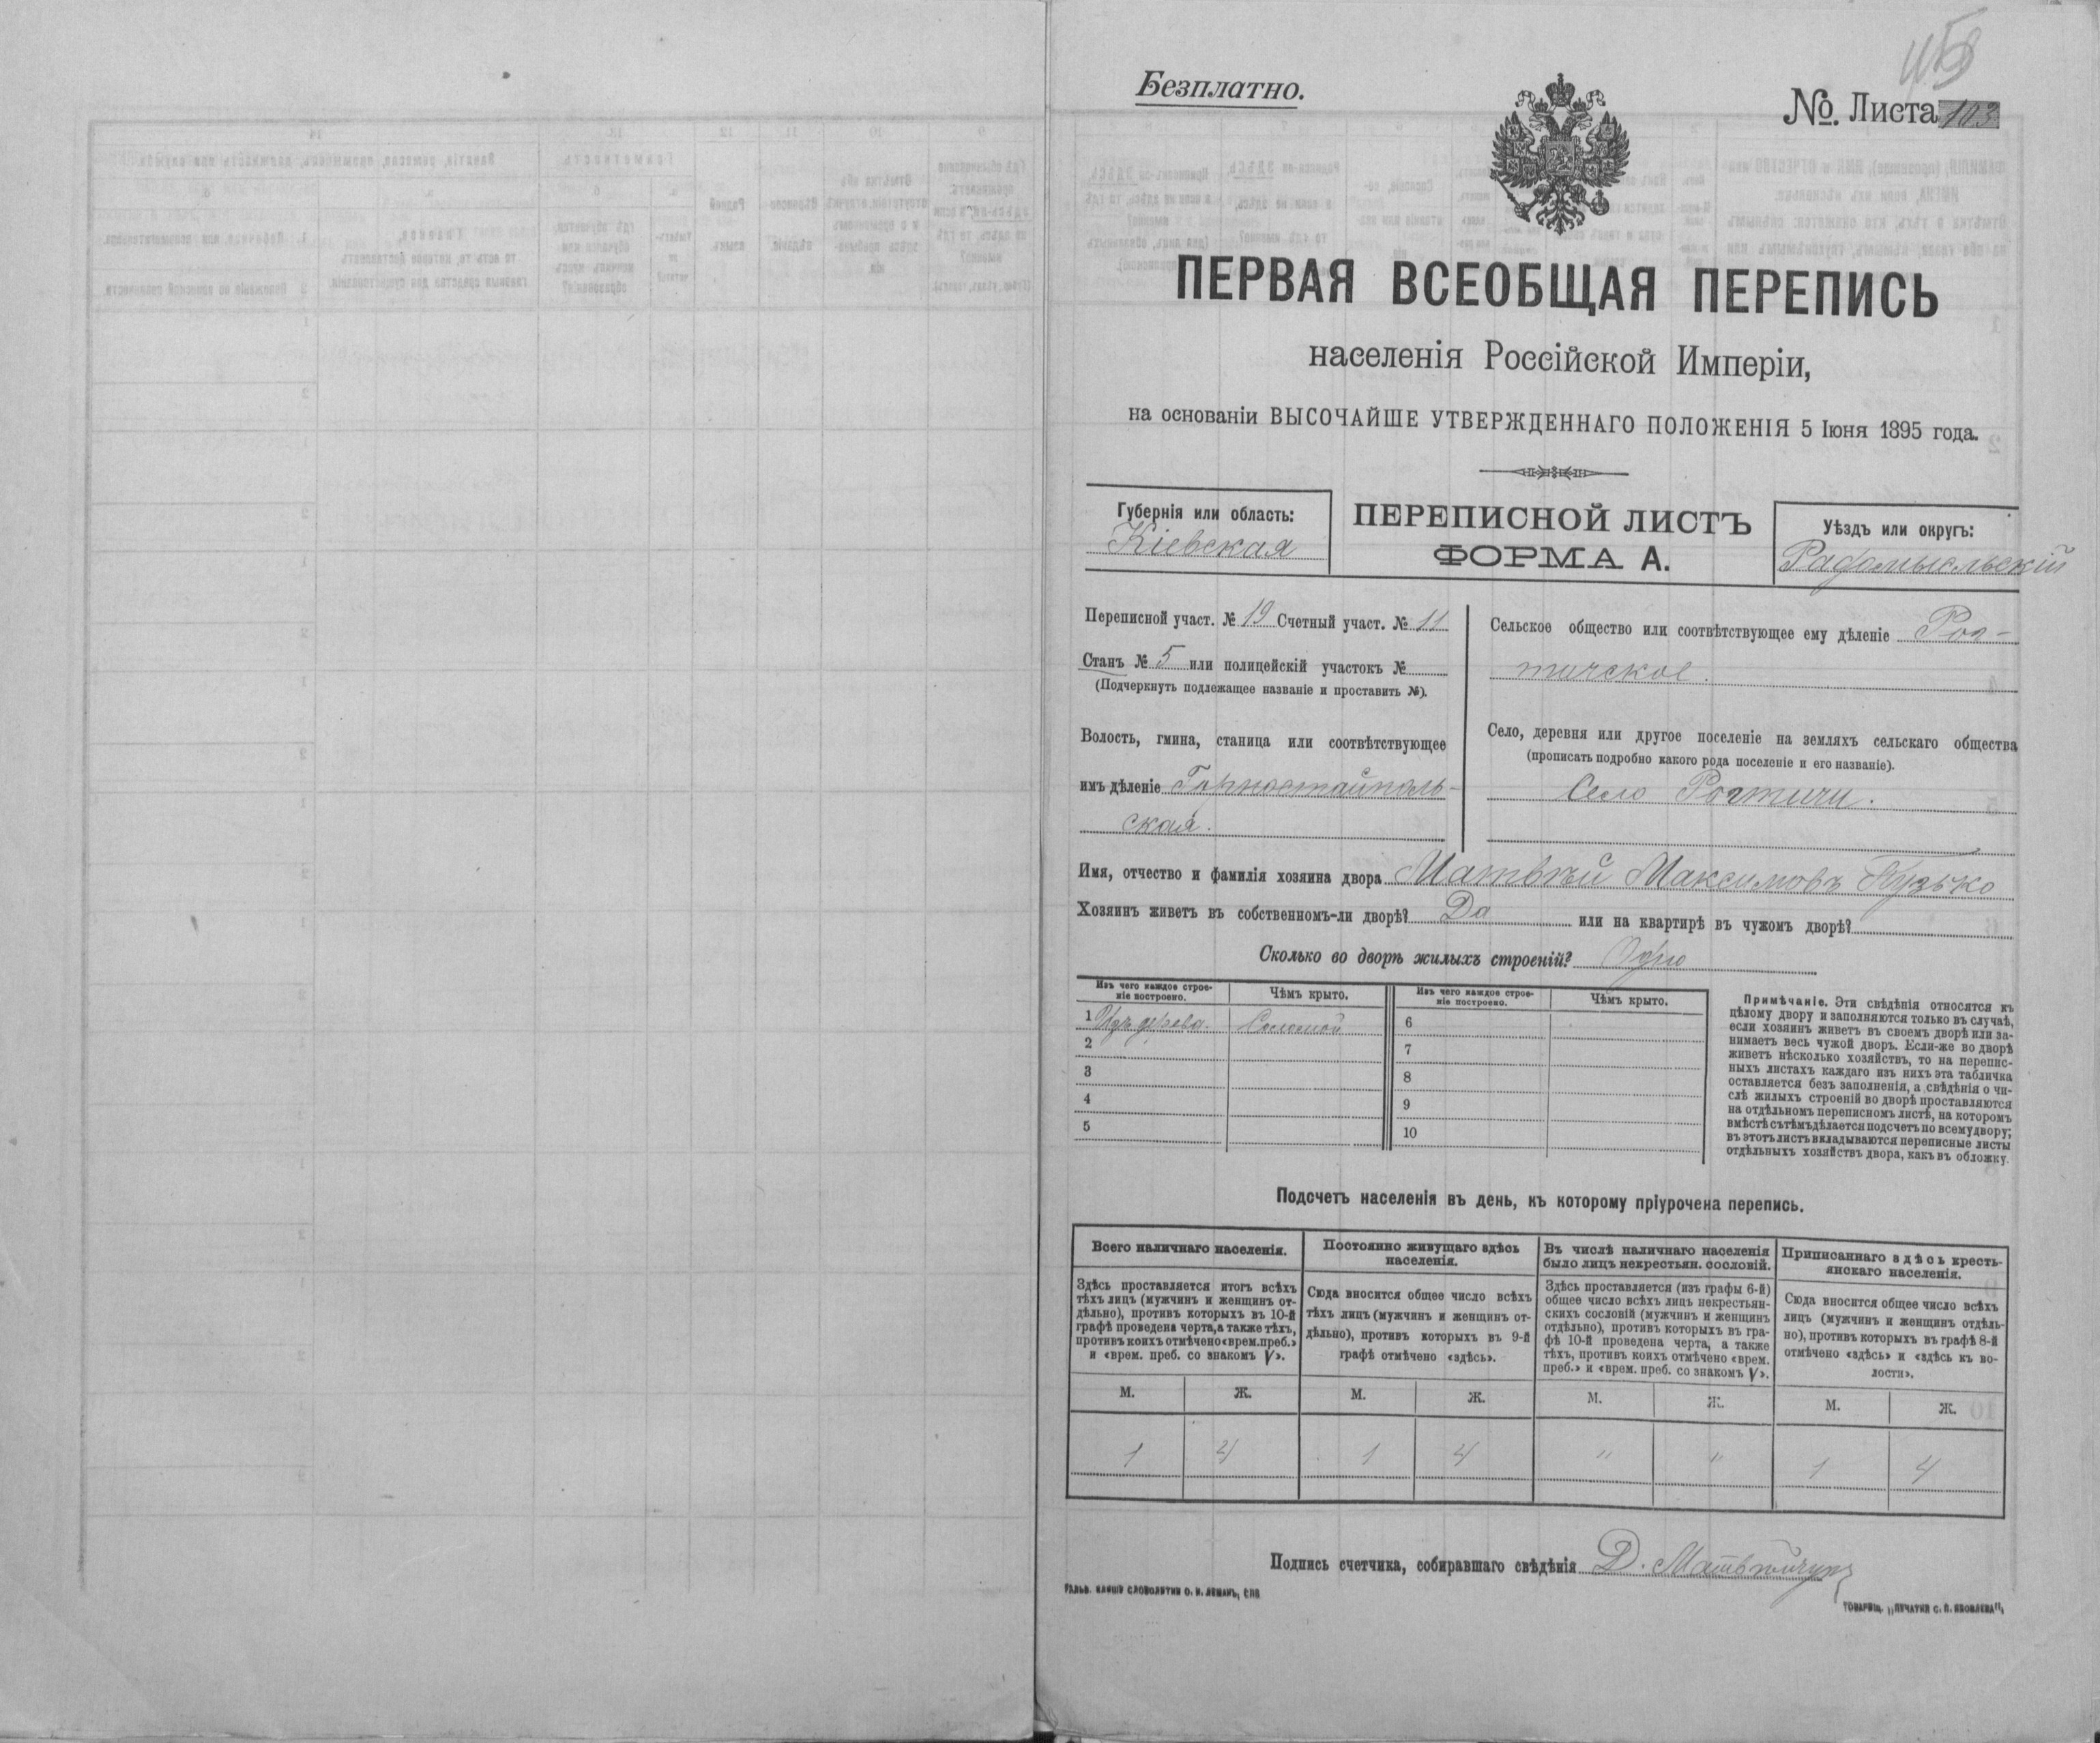 Безплатно.
№. Листа 103
ПЕРВАЯ ВСЕОБЩАЯ ПЕРЕПИСЬ
населенія Россійской Имперіи,
на основаніи ВЫСОЧАЙШЕ УТВЕРЖДЕННАГО ПОЛОЖЕНІЯ 5 Іюня 1895 года.
Губернія или область:
Кіевская
ПЕРЕПИСНОЙ ЛИСТЪ
ФОРМА А.
Уѣздъ или округъ:
Радомысльскій
Переписной участ. № 19 Счетный участ. № 11
Станъ № 5 или полицейскій участокъ №
(Подчеркнуть подлежащее названіе и проставить №).
Волость, гмина, станица или соотвѣтствующее
имъ дѣленіе Горностайполь-
ская.
Сельское общество или соотвѣтствующее ему дѣленіе
тичское.
Село, деревня или другое поселеніе на земляхъ сельскаго общества
(прописать подробно какого рода поселеніе и его названіе).
Село
Имя, отчество и фамилія хозяина двора Матвѣй Максимовъ Пузько
Хозяинъ живетъ въ собственномъ-ли дворѣ? Да или на квартирѣ въ чужомъ дворѣ?
Сколько во дворѣ жилыхъ строеній? Одно
Изъ чего каждое строе-
ніе построено.
Чѣмъ крыто.
Изъ чего каждое строе-
ніе построено.
Чѣмъ крыто.
1 Изъ дерева. Соломой
2
3
4
5
6
7
8
9
10
Примѣчаніе. Эти свѣдѣнія относятся къ
цѣлому двору и заполняются только въ случаѣ,
если хозяинъ живетъ въ своемъ дворѣ или за-
нимаетъ весь чужой дворъ. Если-же во дворѣ
живетъ нѣсколько хозяйствъ, то на перепис-
ныхъ листахъ каждаго изъ нихъ эта табличка
оставляется безъ заполненія, а свѣдѣнія о чи-
слѣ жилыхъ строеній во дворѣ проставляются
на отдѣльномъ переписномъ листѣ, на которомъ
вмѣстѣ съ тѣмъ дѣлается подсчетъ по всему двору;
въ этотъ листъ вкладываются переписные листы
отдѣльныхъ хозяйствъ двора, какъ въ обложку.
Подсчетъ населенія въ день, къ которому пріурочена перепись.
Всего наличнаго населенія.
Здѣсь проставляется итогъ всѣхъ
тѣхъ лицъ (мужчинъ и женщинъ от-
дѣльно), противъ которыхъ въ 10-й
графѣ проведена черта, а также тѣхъ,
противъ коихъ отмѣчено «врем. преб.»
и «врем. преб. со знакомъ V».
М. Ж.
1 4
Постоянно живущаго здѣсь
населенія.
Сюда вносится общее число всѣхъ
тѣхъ лицъ (мужчинъ и женщинъ от-
дѣльно), противъ которыхъ въ 9-й
графѣ отмѣчено «здѣсь».
М. Ж.
1 4
Въ числѣ наличнаго населенія
было лицъ некрестьян. сословій.
Здѣсь проставляется (изъ графы 6-й)
общее число всѣхъ лицъ некрестьян-
скихъ сословій (мужчинъ и женщинъ
отдѣльно), противъ которыхъ въ гра-
фѣ 10-й проведена черта, а также
тѣхъ, противъ коихъ отмѣчено «врем.
преб.» и «врем. преб. со знакомъ V».
М. Ж.
" "
Приписаннаго здѣсь кресть-
янскаго населенія.
Сюда вносится общее число всѣхъ
лицъ (мужчинъ и женщинъ отдѣль-
но), противъ которыхъ въ графѣ 8-й
отмѣчено «здѣсь» и «здѣсь къ во-
лости».
М. Ж.
1 4
Подпись счетчика, собиравшаго свѣдѣнія Д. Матвѣйчукъ
ГАЛЬВ. КЛИШЕ СЛОВОЛИТНИ О. И. ЛЕМАНЪ, СПБ
ТОВАРИЩ. „ПЕЧАТНЯ С. П. ЯКОВЛЕВА".